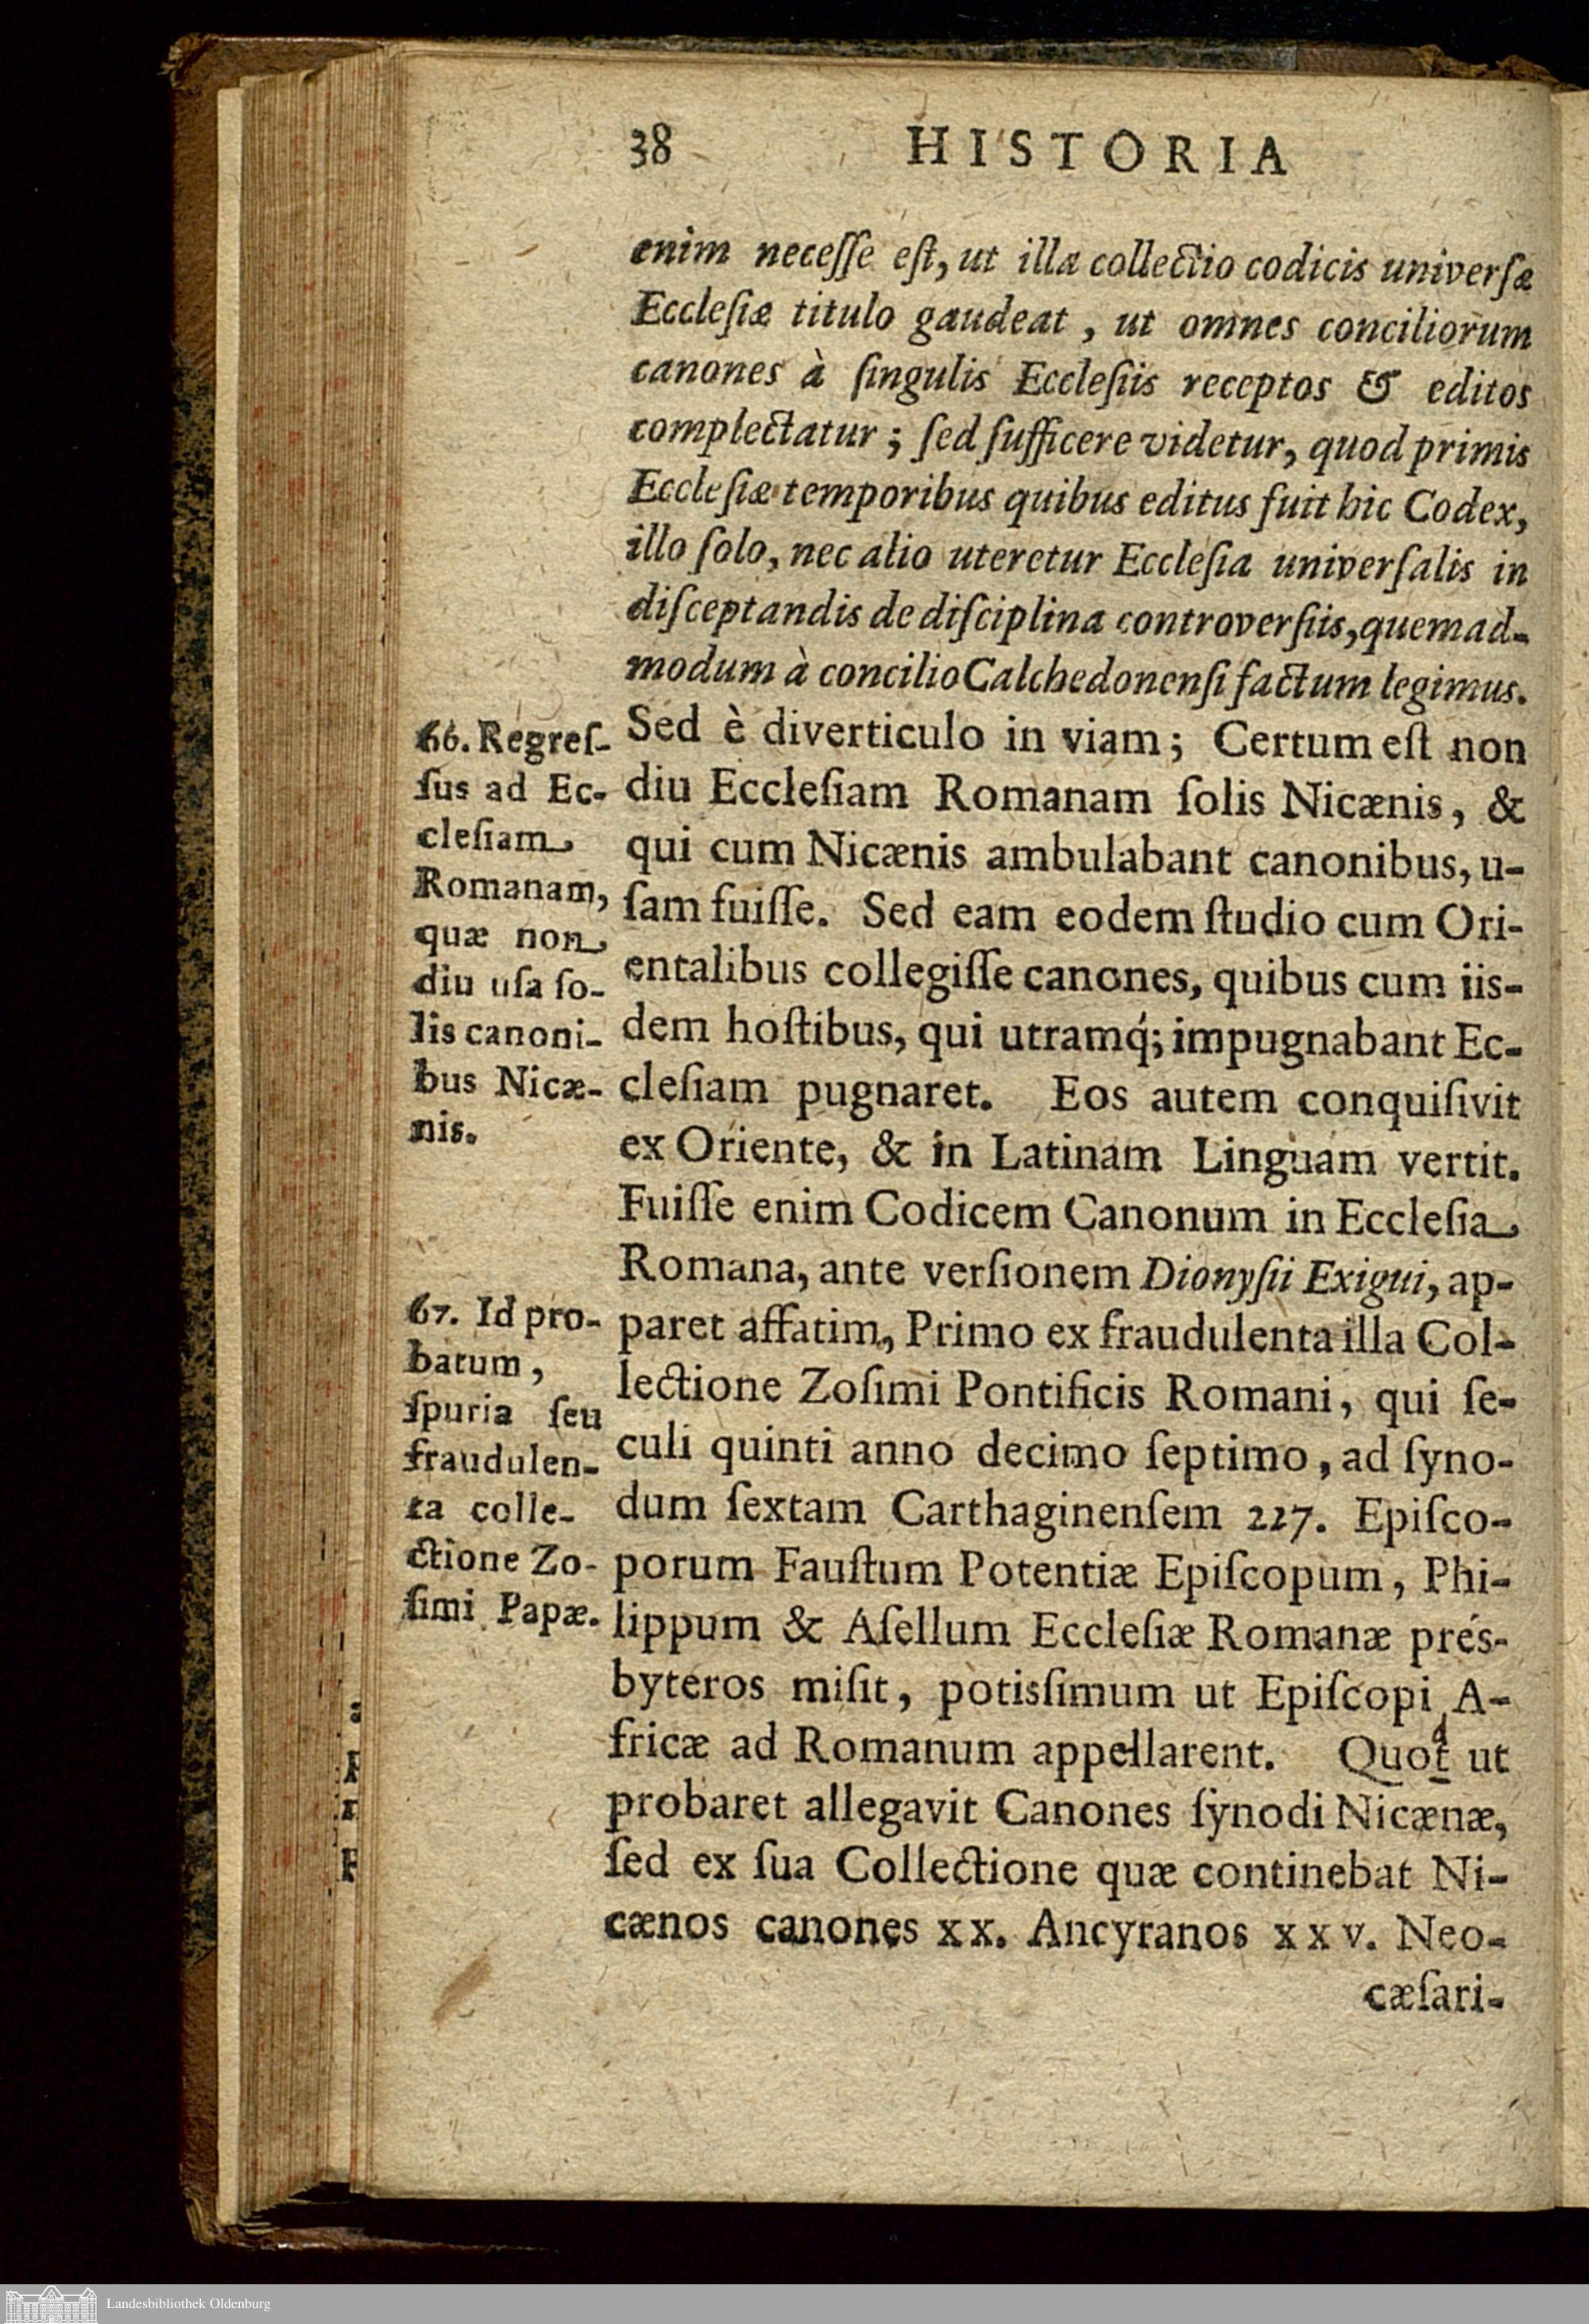 38 HISTORIA
enim necesse est, ut illa collectio codicis universæ
Ecclesiæ titulo gaudeat, ut omnes conciliorum
canones à singulis Ecclesiis receptos & editos
complectatur; sed sufficere videtur, quod primis
Ecclesiæ temporibus quibus editus fuit hic Codex,
illo solo, nec alio uteretur Ecclesia universalis in
disceptandis de disciplina controversiis, quemad-
modum à concilio Calchedonensi factum legimus.
66. Regres-
sus ad Ec-
clesiam
Romanam,
quæ non
diu usa so-
lis canoni-
bus Nicæ-
nis.
Sed è diverticulo in viam; Certum est non
diu Ecclesiam Romanam solis Nicænis, &
qui cum Nicænis ambulabant canonibus, u-
sam fuisse. Sed eam eodem studio cum Ori-
entalibus collegisse canones, quibus cum iis-
dem hostibus, qui utramq́; impugnabant Ec-
clesiam pugnaret. Eos autem conquisivit
ex Oriente, & in Latinam Linguam vertit.
Fuisse enim Codicem Canonum in Ecclesia
Romana, ante versionem Dionysii Exigui, ap-
67. Id pro-
batum,
spuria seu
fraudulen-
ta colle-
ctione Zo-
simi Papæ.
paret affatim, Primo ex fraudulenta illa Col-
lectione Zosimi Pontificis Romani, qui se-
culi quinti anno decimo septimo, ad syno-
dum sextam Carthaginensem 227. Episco-
porum Faustum Potentiæ Episcopum, Phi-
lippum & Asellum Ecclesiæ Romanæ prés-
byteros misit, potissimum ut Episcopi A-
fricæ ad Romanum appellarent. Quot ut
d
probaret allegavit Canones synodi Nicænæ,
sed ex sua Collectione quæ continebat Ni-
cænos canones xx. Ancyranos xxv. Neo-
cæsari-
Landesbibliothek Oldenburg